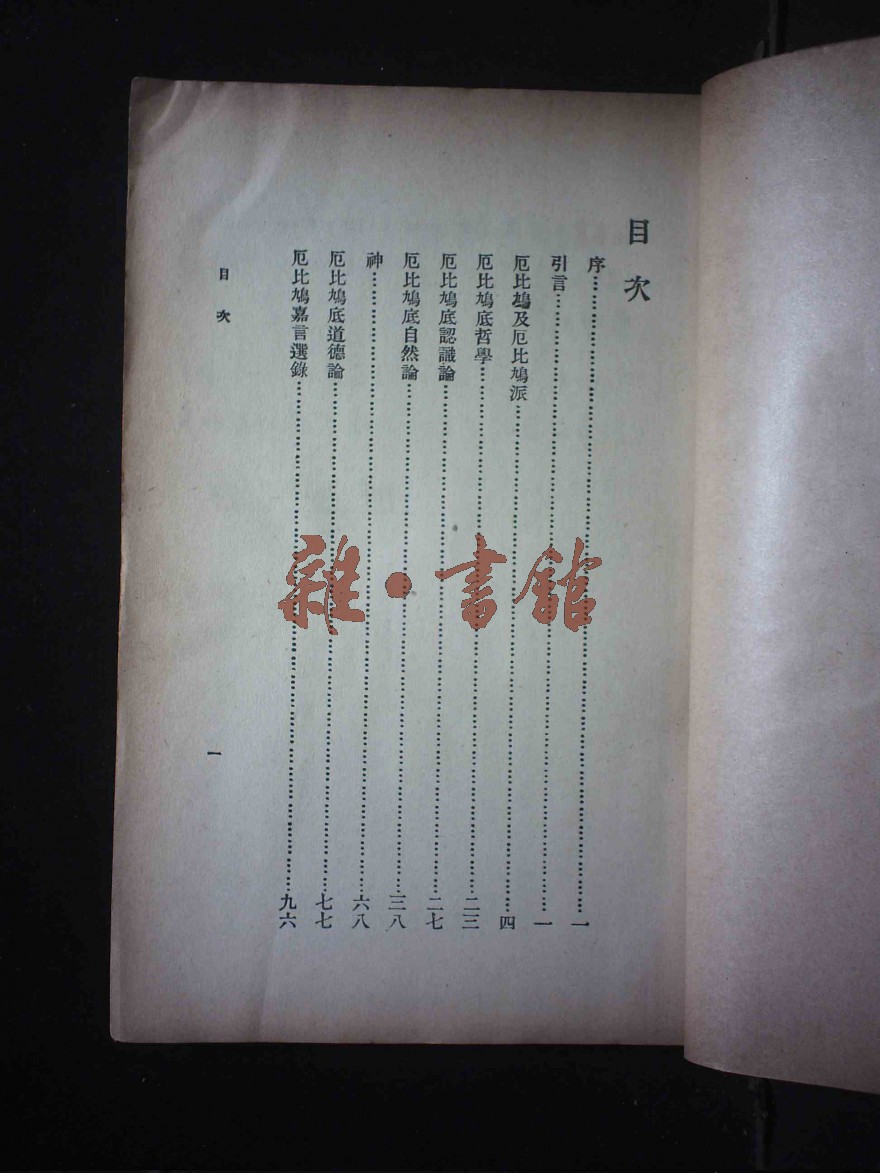 目次
序……一
引言……一
厄比鳩及厄比鳩派……四
厄比鳩底哲學……二三
厄比鳩底認識論……二七
厄比鳩底自然論……三八
神……六八
厄比鳩底道德論……七七
厄比鳩嘉言選錄……九六
目次
一
雜·書館